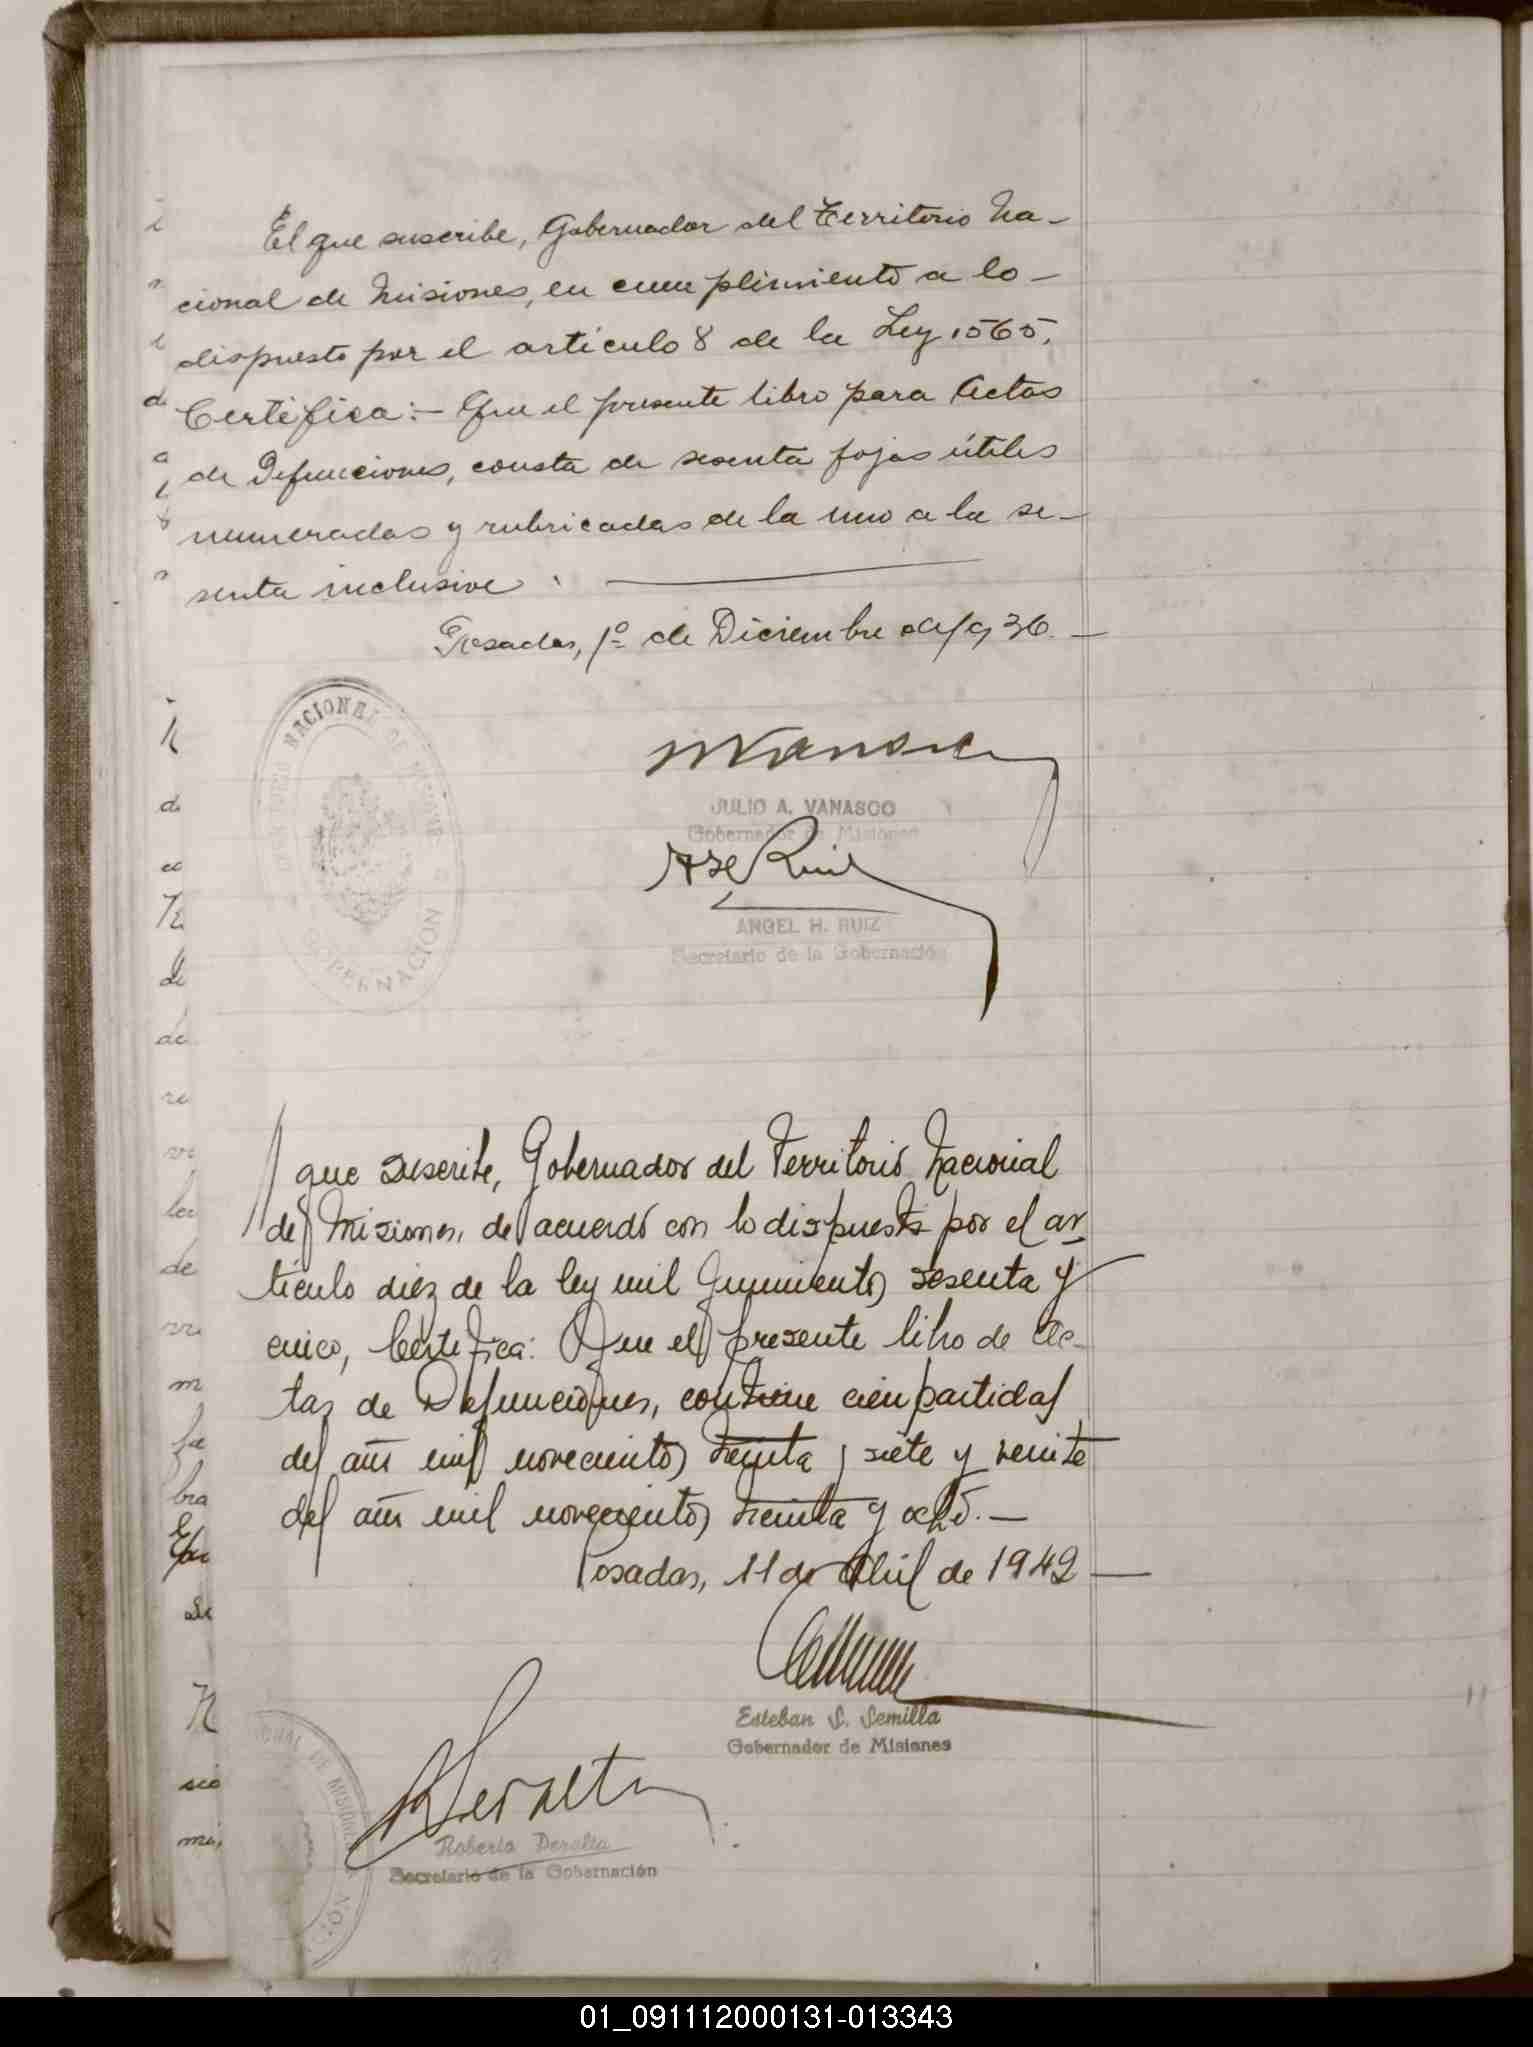 El que suscribe, Gobernador del Territorio Na-
cional de Misiones, en cumplimiento a lo-
dispuesto por el artículo 8 de la Ley 1565,
Certifica:- Que el presente libro para Actas
de Defunciones, consta de sesenta fojas útiles
numeradas y rubricadas de la uno a la se-
senta inclusive.
Posadas, 1º de Diciembre de 1936.-
NACIONAL DE MISIONES
GOBERNACION
JULIO A. VANASCO
Gobernador de Misiones
ANGEL H. RUIZ
Secretario de la Gobernación
que suscribe, Gobernador del Territorio Nacional
de Misiones, de acuerdo con lo dispuesto por el ar-
tículo diez de la ley mil quinientos sesenta y
cinco, Certifica: Que el presente libro de Ac-
tas de Defunciones, contiene cien partidas
del año mil novecientos treinta y siete y veinte
del año mil novecientos treinta y ocho.-
Posadas, 11 de Abril de 1942-
Esteban S. Semilla
Gobernador de Misiones
Peralta
Roberto Peralta
Secretario de la Gobernación
01_091112000131-013343